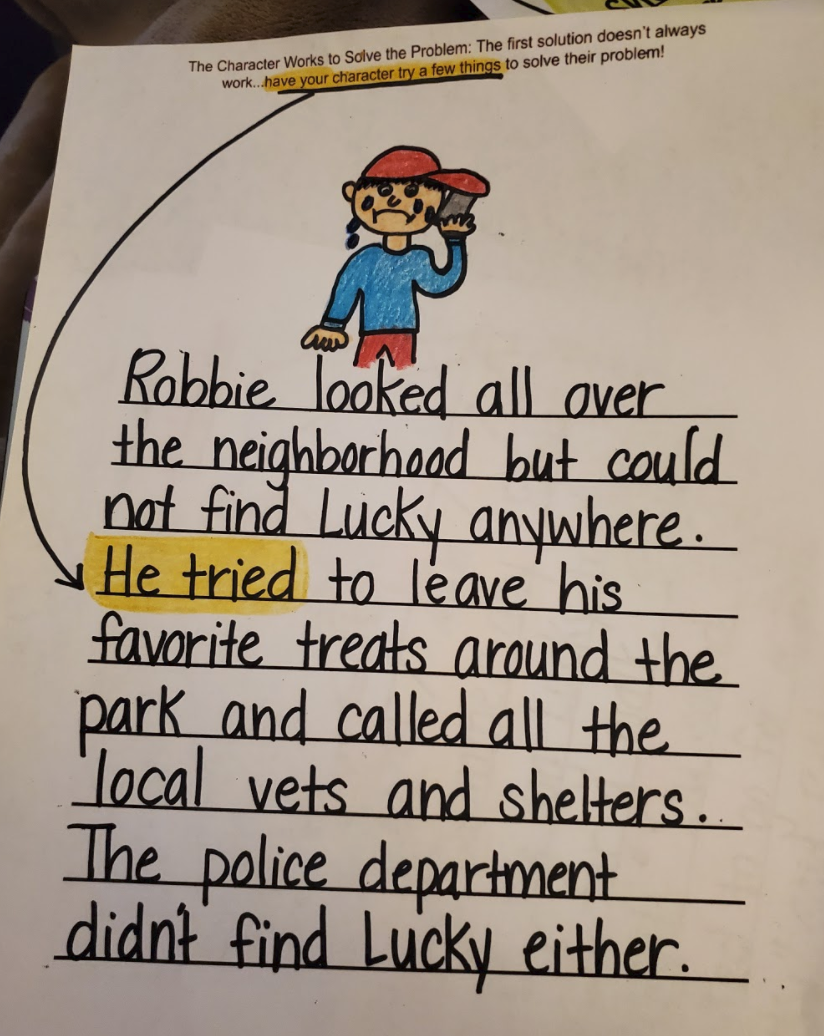 The Character Works to Solve the Problem: The first solution doesn't always
work...have your character try a few things to solve their problem!
Robbie looked all over
the neighborhood but could
not find Lucky anywhere.
He tried to leave his
favorite treats around the
park and called all the
local vets and shelters.
The police department
didn't find Lucky either.